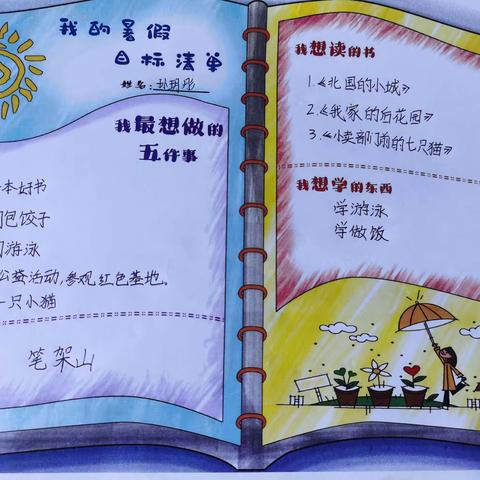 我的暑假
目标清单
姓名:孙玥彤
我最想做的
五件事
本好书
包饺子
游泳
公益活动,参观红色基地。
一只小猫
笔架山
我想读的书
1.《北国的小城》
2.《我家的后花园》
3.《小卖部门前的七只猫》
我想学的东西
学游泳
学做饭